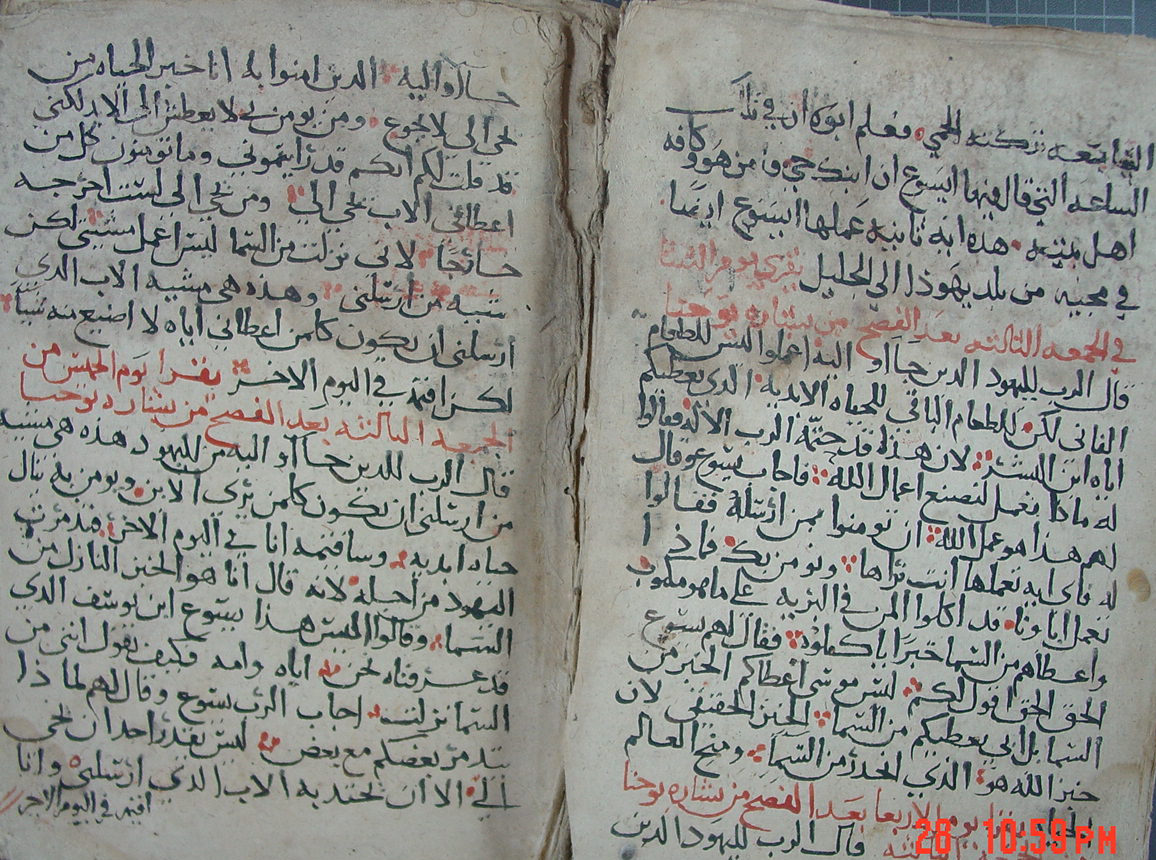 السابعه تركته الحمي فعلم ابوه ان في تلك
الساعه التي قال فيها ايسوع ان ابنك حي فامن هو وكافه
اهل بيته هذه ايه ثانيه عملها ايسوع ايضا
في مجييه من بلد يهوذا الي الجليل يقري يوم الثلثا
في الجمعه الثالثه بعد الفصح من بشاره يوحنا
قال الرب لليهود الذين جااو اليه اعملوا ليس للطعام
الفاني لكن للطعام الباقي للحياه الابديه الذي يعطيكم
اياه ابن البشر لان هذا قد ختمه الرب الاله فقالوا
له ماذا نعمل لنصنع اعمال الله فاجاب يسوع وقال
لهم هذا هو عمل الله ان تومنوا بمن ارسله فقالوا
له فاي ايه تعملها انت نراها ونومن بك فماذا
تعمل اباونا قد اكلوا المن في البريه علي ما هو مكتوب
واعطاهم من السما خبزا ياكلوه فقال لهم يسوع
الحق الحق اقول لكم ليس موسي اعطاكم الخبز من
السما بل ابي يعطيكم من السما الخبز الحقيقي لان
خبز الله هو الذي انحدر من السما ومنح العالم
الحياه يقرا يوم الاربعا بعد الفصح من بشاره يوحنا
قال الرب لليهود الذين
جااوا اليه الذين امنوا به انا خبز الحياه من
يجي الي لا يجوع ومن يومن بي لا يعطش الي الابد لكني
قد قلت لكم انكم قد رايتموني وما تومنون كل من
اعطاني الاب يجي الي ومن يجي الي لست اخرجه
خارجا لاني نزلت من السما ليس اعمل مشيتي لكن
مشيه من ارسلني وهذه هي مشيه الاب الذي
ارسلني ان يكون كلمن اعطاني اياه لا اضيع منه شيا
لكن اقيمه في اليوم الاخر يقرا يوم الخميس من
الجمعه الثالثه بعد الفصح من بشاره يوحنا
قال الرب للذين جااو اليه من اليهود هذه هي مشيه
من ارسلني ان يكون كلمن يري الابن ويومن به ينال
حياه ابديه وساقيمه انا في اليوم الاخر فتدمرت
اليهود من اجله لانه قال انا هو الخبز النازل من
السما وقالوا اليس هذا يسوع ابن يوسف الذي
قد عرفناه نحن اباه وامه فكيف يقول انني من
السما نزلت اجاب الرب يسوع وقال لهم لماذا
يتدمر بعضكم مع بعض ليس يقدر احد ان يجي
الي الا ان يجتدبه الاب الذي ارسلني وانا
اقيمه في اليوم الاخر
28 10:59 PM